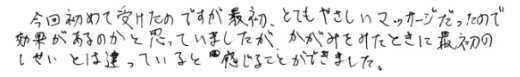 今回初めて受けたのですが最初、とてもやさしいマッサージだったので
効果があるのかと思っていましたが、かがみをみたときに最初の
しせいとは違っていると感じることができました。